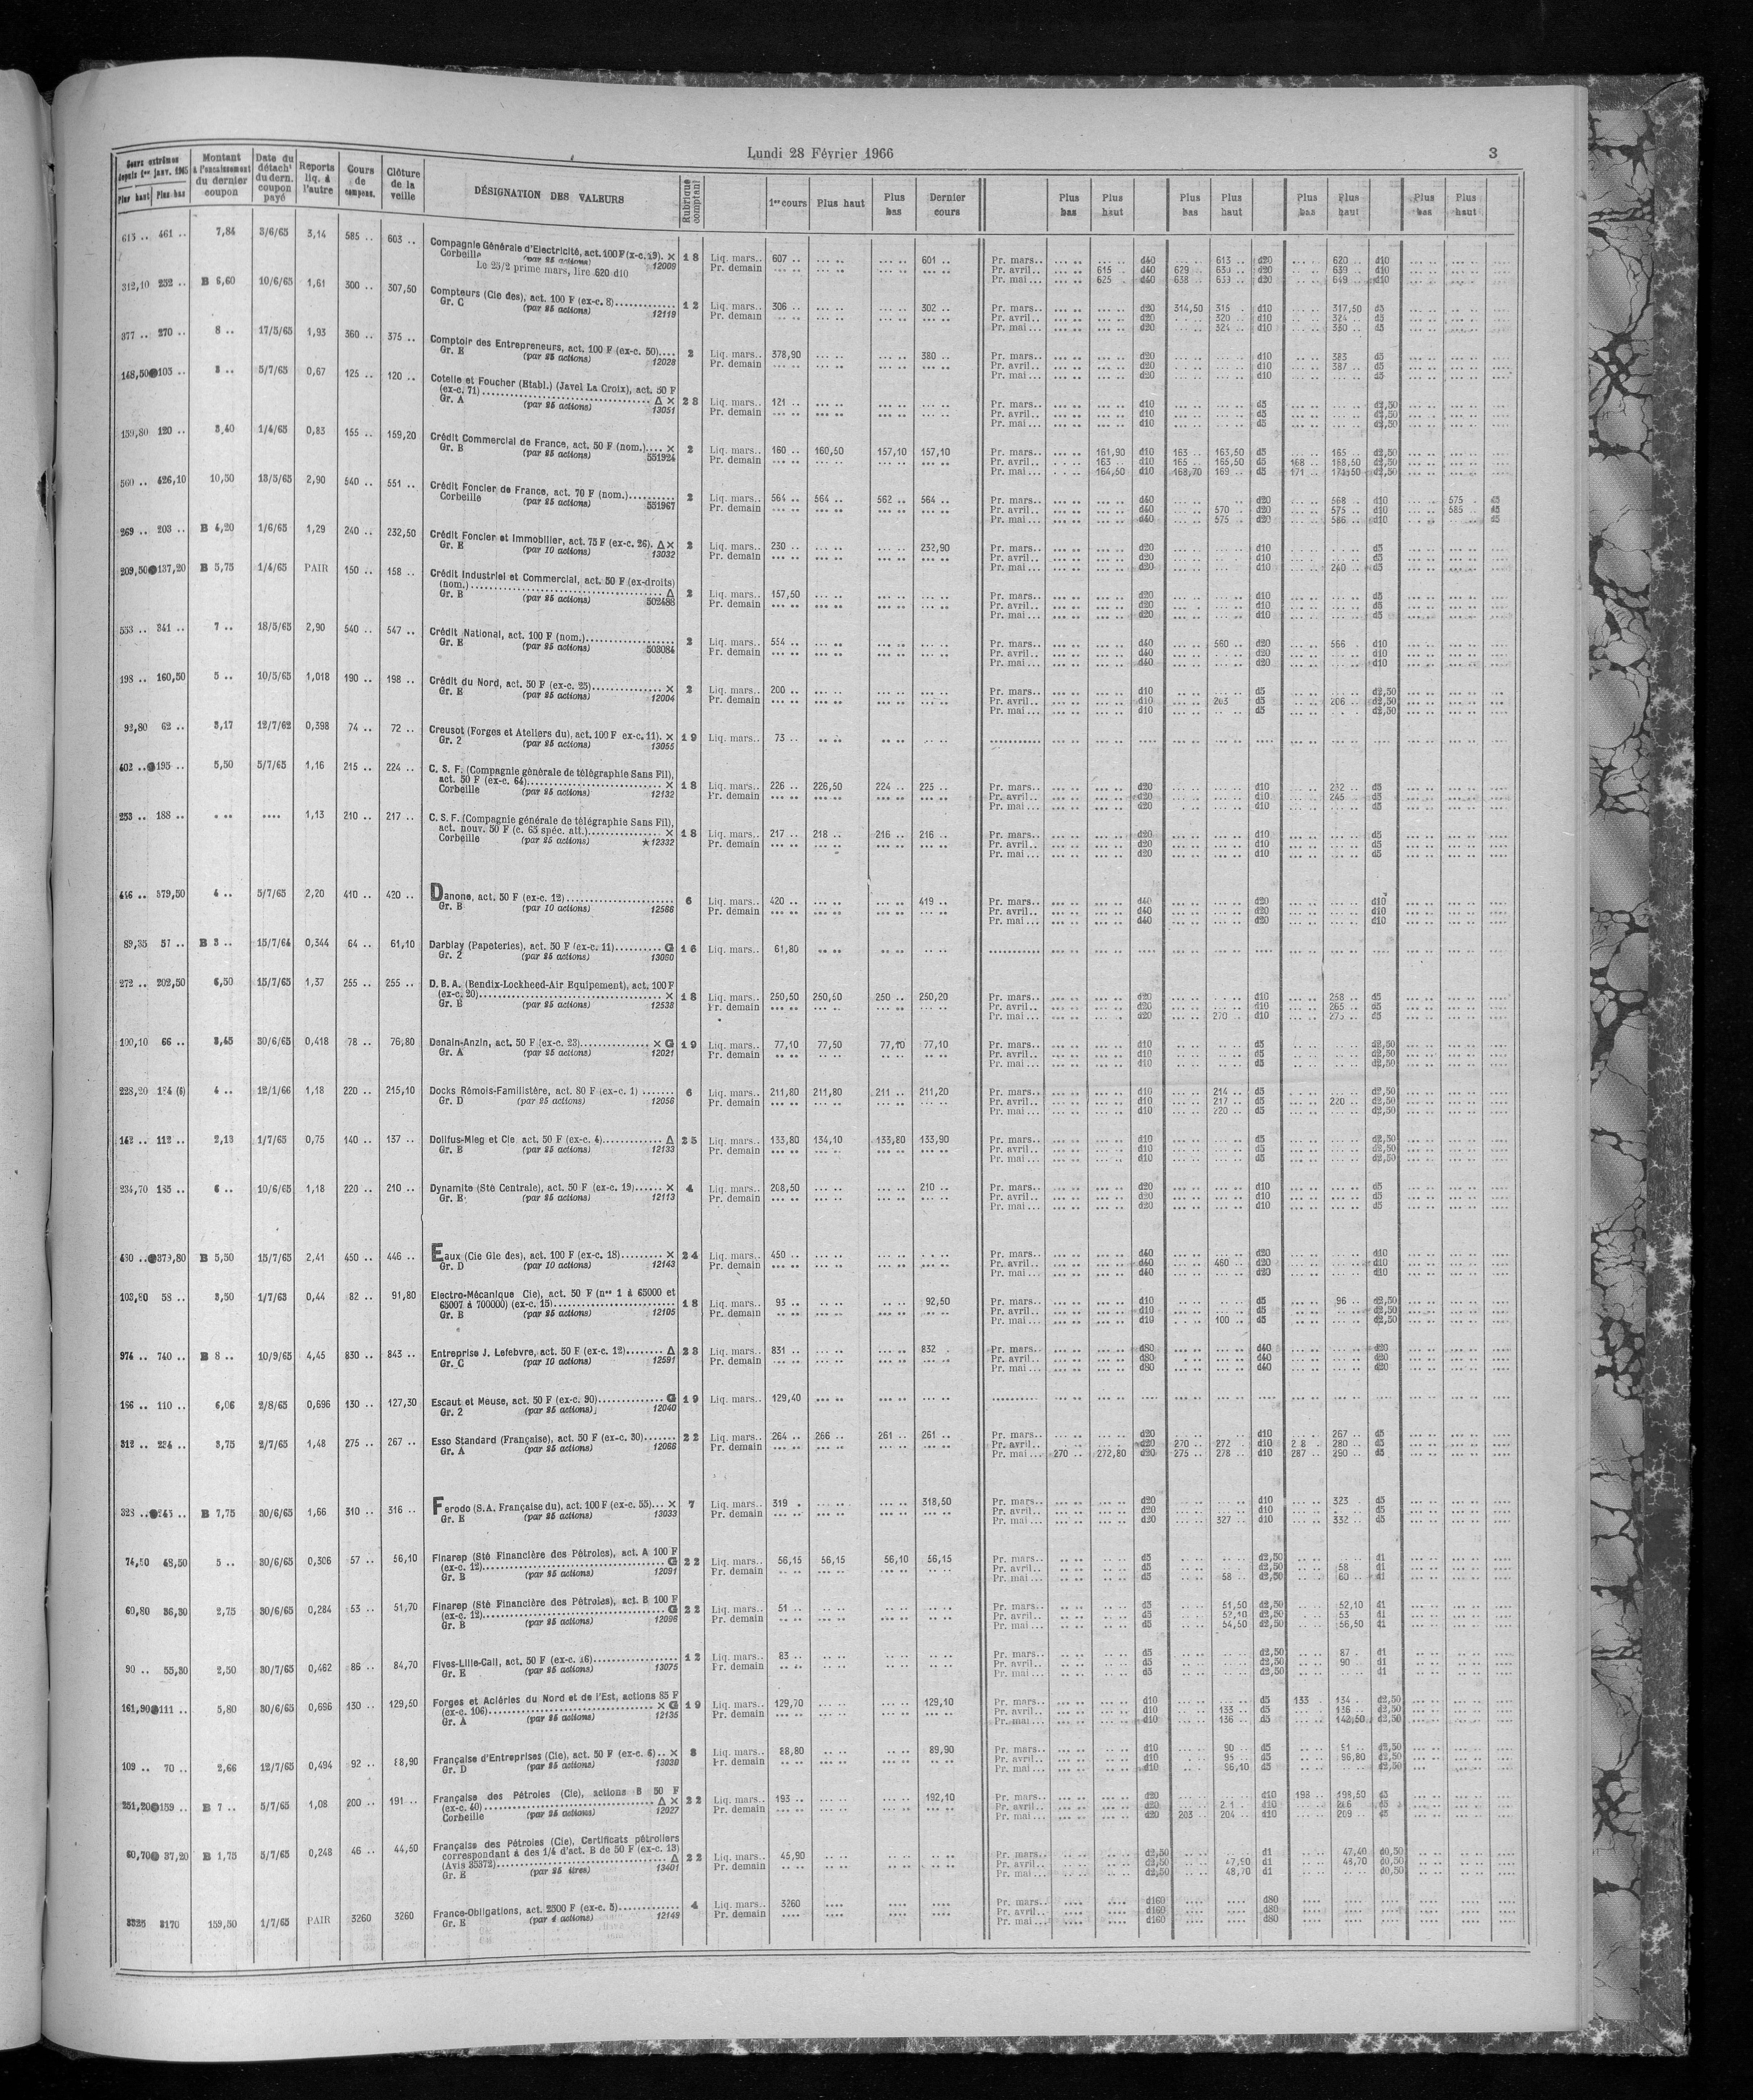 Lundi 28 Février 1966
3
Cours extrêmes depuis 1er janv. 1965 Plus haut Plus bas | Montant à l'encaissement du dernier coupon | Date du détacht du dern. coupon payé | Reports liq. à l'autre | Cours de compens. | Clôture de la veille | DÉSIGNATION DES VALEURS | Rubrique comptant | 1er cours | Plus haut | Plus bas | Dernier cours | Plus bas | Plus haut | Plus bas | Plus haut | Plus bas | Plus haut | Plus bas | Plus haut
613 .. 461 .. 7,84 3/6/65 3,14 585 .. 603 .. Compagnie Générale d'Electricité, act. 100 F (x-c. 19). × 18 Liq. mars.. 607 .. 601 .. Pr. mars.. d40 613 .. d20 620 .. d10
Corbeille (par 25 actions) 12009 Pr. demain Pr. avril.. 615 .. d40 629 .. d20 639 .. d10
Le 25/2 prime mars, lire 620 d10 Pr. mai... 625 .. d40 638 .. d20 649 .. d10
312,10 252 .. B 6,60 10/6/65 1,61 300 .. 307,50 Compteurs (Cie des), act. 100 F (ex-c. 8) 12 Liq. mars.. 306 .. 302 .. Pr. mars.. d20 314,50 315 . d10 317,50 d5
Gr. C (par 25 actions) 12119 Pr. demain Pr. avril.. d20 320 .. d10 324 .. d5
Pr. mai... d20 324 .. d10 330 .. d5
377 .. 270 .. 8 .. 17/5/65 1,93 360 .. 375 .. Comptoir des Entrepreneurs, act. 100 F (ex-c. 50).... 2 Liq. mars.. 378,90 380 .. Pr. mars.. d20 d10 383 d5
Gr. E (par 25 actions) 12028 Pr. demain Pr. avril.. d20 d10 387 .. d5
Pr. mai... d20 d10 d5
148,50 103 .. 3 .. 5/7/65 0,67 125 .. 120 .. Cotelle et Foucher (Etabl.) (Javel La Croix), act. 50 F
(ex-c. 71) Δ × 28 Liq. mars.. 121 .. Pr. mars.. d10 d5 d2,50
Gr. A (par 25 actions) 13051 Pr. demain Pr. avril.. d10 d5 d2,50
Pr. mai... d10 d5 d2,50
159,80 120 .. 3,40 1/4/65 0,83 155 .. 159,20 Crédit Commercial de France, act. 50 F (nom.).... × 2 Liq. mars.. 160 .. 160,50 157,10 157,10 Pr. mars.. 161,90 d10 163 .. 163,50 d5 165 .. d2,50
Gr. B (par 25 actions) 551924 Pr. demain Pr. avril.. 163 .. d10 165 .. 165,50 d5 168 .. 168,50 d2,50
Pr. mai... 164,50 d10 168,70 169 .. d5 171 .. d2,50
560 .. 426,10 10,50 13/5/65 2,90 540 .. 551 .. Crédit Foncier de France, act. 70 F (nom.) 2 Liq. mars.. 564 .. 564 .. 562 .. 564 .. Pr. mars.. d40 d20 568 . d10 575 . d5
Corbeille (par 25 actions) 551967 Pr. demain Pr. avril.. d40 570 .. d20 575 .. d10 585 .. d5
Pr. mai... d40 575 .. d20 586 .. d10 d5
269 .. 203 .. B 4,20 1/6/65 1,29 240 .. 232,50 Crédit Foncier et Immobilier, act. 75 F (ex-c. 26). Δ × 2 Liq. mars.. 230 .. 232,90 Pr. mars.. d20 d10 d5
Gr. E (par 10 actions) 13032 Pr. demain Pr. avril.. d20 d10 d5
Pr. mai... d20 d10 240 .. d5
209,50 137,20 B 5,75 1/4/65 PAIR 150 .. 158 .. Crédit Industriel et Commercial, act. 50 F (ex-droits)
(nom.) Δ 2 Liq. mars.. 157,50 Pr. mars.. d20 d10 d5
Gr. B (par 25 actions) 502488 Pr. demain Pr. avril.. d20 d10 d5
Pr. mai... d20 d10 d5
553 .. 341 .. 7 .. 18/5/65 2,90 540 .. 547 .. Crédit National, act. 100 F (nom.) 2 Liq. mars.. 554 .. Pr. mars.. d40 560 .. d20 566 . d10
Gr. E (par 25 actions) 503084 Pr. demain Pr. avril.. d40 d20 d10
Pr. mai... d40 d20 d10
198 .. 160,50 5 .. 10/5/65 1,018 190 .. 198 .. Crédit du Nord, act. 50 F (ex-c. 25) × 2 Liq. mars.. 200 .. Pr. mars.. d10 d5 d2,50
Gr. E (par 25 actions) 12004 Pr. demain Pr. avril.. d10 203 .. d5 206 .. d2,50
Pr. mai... d10 d5 d2,50
92,80 62 .. 3,17 12/7/62 0,398 74 .. 72 .. Creusot (Forges et Ateliers du), act. 100 F ex-c. 11). × 19 Liq. mars.. 73 ..
Gr. 2 (par 25 actions) 13055
402 .. 195 .. 5,50 5/7/65 1,16 215 .. 224 .. C. S. F. (Compagnie générale de télégraphie Sans Fil),
act. 50 F (ex-c. 64) × 18 Liq. mars.. 226 .. 226,50 224 .. 225 .. Pr. mars.. d20 d10 232 .. d5
Corbeille (par 25 actions) 12132 Pr. demain Pr. avril.. d20 d10 245 .. d5
Pr. mai... d20 d10 d5
253 .. 188 .. 1,13 210 .. 217 .. C. S. F. (Compagnie générale de télégraphie Sans Fil),
act. nouv. 50 F (c. 65 spéc. att.) × 18 Liq. mars.. 217 .. 218 .. 216 .. 216 .. Pr. mars.. d20 d10 d5
Corbeille (par 25 actions) ★ 12332 Pr. demain Pr. avril.. d20 d10 d5
Pr. mai... d20 d10 d5
379,50 4 .. 5/7/65 2,20 410 .. 420 .. Danone, act. 50 F (ex-c. 12) 6 Liq. mars.. 420 .. 419 .. Pr. mars.. d40 d20 d10
Gr. B (par 10 actions) 12566 Pr. demain Pr. avril.. d40 d20 d10
Pr. mai... d40 d20 d10
89,35 51 .. B 3 .. 15/7/64 0,344 64 .. 61,10 Darblay (Papeteries), act. 50 F (ex-c. 11) G 16 Liq. mars.. 61,80
Gr. 2 (par 25 actions) 13060
272 .. 202,50 6,50 15/7/65 1,37 255 .. 255 .. D. B. A. (Bendix-Lockheed-Air Equipement), act. 100 F
(ex-c. 20) × 18 Liq. mars.. 250,50 250,50 250 .. 250,20 Pr. mars.. d20 d10 258 .. d5
Gr. B (par 25 actions) 12538 Pr. demain Pr. avril.. d20 d10 265 .. d5
Pr. mai... d20 270 . d10 d5
100,10 66 .. 3,45 30/6/65 0,418 78 .. 76,80 Denain-Anzin, act. 50 F (ex-c. 23) × G 19 Liq. mars.. 77,10 77,50 77,10 77,10 Pr. mars.. d10 d5 d2,50
Gr. A (par 25 actions) 12021 Pr. demain Pr. avril.. d10 d5 d2,50
Pr. mai... d10 d5 d2,50
228,20 184 (6) 4 .. 12/1/66 1,18 220 .. 215,10 Docks Rémois-Familistère, act. 80 F (ex-c. 1) 6 Liq. mars.. 211,80 211,80 211 .. 211,20 Pr. mars.. d10 214 .. d5 d2,50
Gr. D (par 25 actions) 12056 Pr. demain Pr. avril.. d10 217 .. d5 220 .. d2,50
Pr. mai... d10 220 .. d5 d2,50
142 .. 112 .. 2,13 1/7/65 0,75 140 .. 137 .. Dollfus-Mieg et Cie act. 50 F (ex-c. 4) Δ 25 Liq. mars.. 133,80 134,10 133,80 133,90 Pr. mars.. d10 d5 d2,50
Gr. B (par 25 actions) 12133 Pr. demain Pr. avril.. d10 d5 d2,50
Pr. mai... d10 d5 d2,50
234,70 185 .. 6 .. 10/6/65 1,18 220 .. 210 .. Dynamite (Sté Centrale), act. 50 F (ex-c. 19) × 4 Liq. mars.. 208,50 210 .. Pr. mars.. d20 d10 d5
Gr. E (par 25 actions) 12113 Pr. demain Pr. avril.. d20 d10 d5
Pr. mai... d20 d10 d5
373,80 B 5,50 15/7/65 2,41 450 .. 446 .. Eaux (Cie Gle des), act. 100 F (ex-c. 18) × 24 Liq. mars.. 450 .. Pr. mars.. d40 d20 d10
Gr. D (par 10 actions) 12143 Pr. demain Pr. avril.. d40 460 .. d20 d10
Pr. mai... d40 d20 d10
103,80 58 .. 3,50 1/7/63 0,44 82 .. 91,80 Electro-Mécanique Cie), act. 50 F (nos 1 à 65000 et
65007 à 700000) (ex-c. 15) 18 Liq. mars.. 93 .. 92,50 Pr. mars.. d10 d5 96 .. d2,50
Gr. B (par 25 actions) 12105 Pr. demain Pr. avril.. d10 d5 d2,50
Pr. mai... d10 100 .. d5 d2,50
974 .. 740 .. B 8 .. 10/9/65 4,45 830 .. 843 .. Entreprise J. Lefebvre, act. 50 F (ex-c. 12) Δ 23 Liq. mars.. 831 .. 832 . Pr. mars.. d80 d40 d20
Gr. C (par 10 actions) 12591 Pr. demain Pr. avril.. d80 d40 d20
Pr. mai... d80 d40 d20
166 .. 110 .. 6,06 2/8/65 0,696 130 .. 127,30 Escaut et Meuse, act. 50 F (ex-c. 90) G 19 Liq. mars.. 129,40
Gr. 2 (par 25 actions) 12040
312 .. 234 .. 3,75 2/7/65 1,48 275 .. 267 .. Esso Standard (Française), act. 50 F (ex-c. 30) 22 Liq. mars.. 264 .. 266 .. 261 .. 261 .. Pr. mars.. d20 d10 267 .. d5
Gr. A (par 25 actions) 12066 Pr. demain Pr. avril.. d20 270 .. 272 . d10 280 .. d5
Pr. mai... 270 .. 272,80 d20 275 .. 278 .. d10 287 .. 290 .. d5
328 .. 245 .. B 7,75 30/6/65 1,66 310 .. 316 .. Ferodo (S.A. Française du), act. 100 F (ex-c. 55)... × 7 Liq. mars.. 319 . 318,50 Pr. mars.. d20 d10 323 . d5
Gr. E (par 25 actions) 13033 Pr. demain Pr. avril.. d20 d10 d5
Pr. mai... d20 327 .. d10 332 .. d5
74,50 48,50 5 .. 30/6/65 0,306 57 .. 56,10 Finarep (Sté Financière des Pétroles), act. A 100 F
(ex-c. 12) G 22 Liq. mars.. 56,15 56,15 56,10 56,15 Pr. mars.. d5 d2,50 d1
Gr. B (par 25 actions) 12091 Pr. demain Pr. avril.. d5 d2,50 58 .. d1
Pr. mai... d5 58 .. d2,50 60 .. d1
60,80 36,30 2,75 30/6/65 0,284 53 .. 51,70 Finarep (Sté Financière des Pétroles), act. B 100 F
(ex-c. 12) G 22 Liq. mars.. 51 .. Pr. mars.. d5 51,50 d2,50 52,10 d1
Gr. B (par 25 actions) 12096 Pr. demain Pr. avril.. d5 52,10 d2,50 53 d1
Pr. mai... d5 54,50 d2,50 56,50 d1
90 .. 55,30 2,50 30/7/65 0,462 86 .. 84,70 Fives-Lille-Cail, act. 50 F (ex-c. 16) 12 Liq. mars.. 83 .. Pr. mars.. d5 d2,50 87 . d1
Gr. E (par 25 actions) 13075 Pr. demain Pr. avril.. d5 d2,50 90 .. d1
Pr. mai... d5 d2,50 d1
161,90 111 .. 5,80 30/6/65 0,696 130 .. 129,50 Forges et Aciéries du Nord et de l'Est, actions 85 F
(ex-c. 106) × G 19 Liq. mars.. 129,70 129,10 Pr. mars.. d10 d5 133 .. 134 . d2,50
Gr. A (par 25 actions) 12135 Pr. demain Pr. avril.. d10 133 .. d5 136 .. d2,50
Pr. mai... d10 136 .. d5 142,50 d2,50
109 .. 70 .. 2,66 12/7/65 0,494 92 .. 88,90 Française d'Entreprises (Cie), act. 50 F (ex-c. 6).. × 8 Liq. mars.. 88,80 89,90 Pr. mars.. d10 90 .. d5 91 .. d2,50
Gr. D (par 25 actions) 13030 Pr. demain Pr. avril.. d10 95 .. d5 96,80 d2,50
Pr. mai... d10 96,10 d5 d2,50
251,20 159 .. B 7 .. 5/7/65 1,08 200 .. 191 .. Française des Pétroles (Cie), actions B 50 F
(ex-c. 40) Δ × 22 Liq. mars.. 193 .. 192,10 Pr. mars.. d20 d10 198 .. 198,50 d5
Corbeille (par 25 actions) 12027 Pr. demain Pr. avril.. d20 d10 d5
Pr. mai... d20 203 .. 204 .. d10 209 .. d5
60,70 37,20 B 1,75 5/7/65 0,248 46 .. 44,50 Française des Pétroles (Cie), Certificats pétroliers
correspondant à des 1/4 d'act. B de 50 F (ex-c. 13)
(Avis 35372) Δ 22 Liq. mars.. 45,90 Pr. mars.. d2,50 d1 47,40 d0,50
Gr. E (par 25 titres) 13401 Pr. demain Pr. avril.. d2,50 47,90 d1 48,70 d0,50
Pr. mai... d2,50 48,70 d1 d0,50
3335 3170 159,50 1/7/65 PAIR 3260 3260 France-Obligations, act. 2500 F (ex-c. 5) 4 Liq. mars.. 3260 Pr. mars.. d160 d80
Gr. E (par 4 actions) 12149 Pr. demain Pr. avril.. d160 d80
Pr. mai... d160 d80